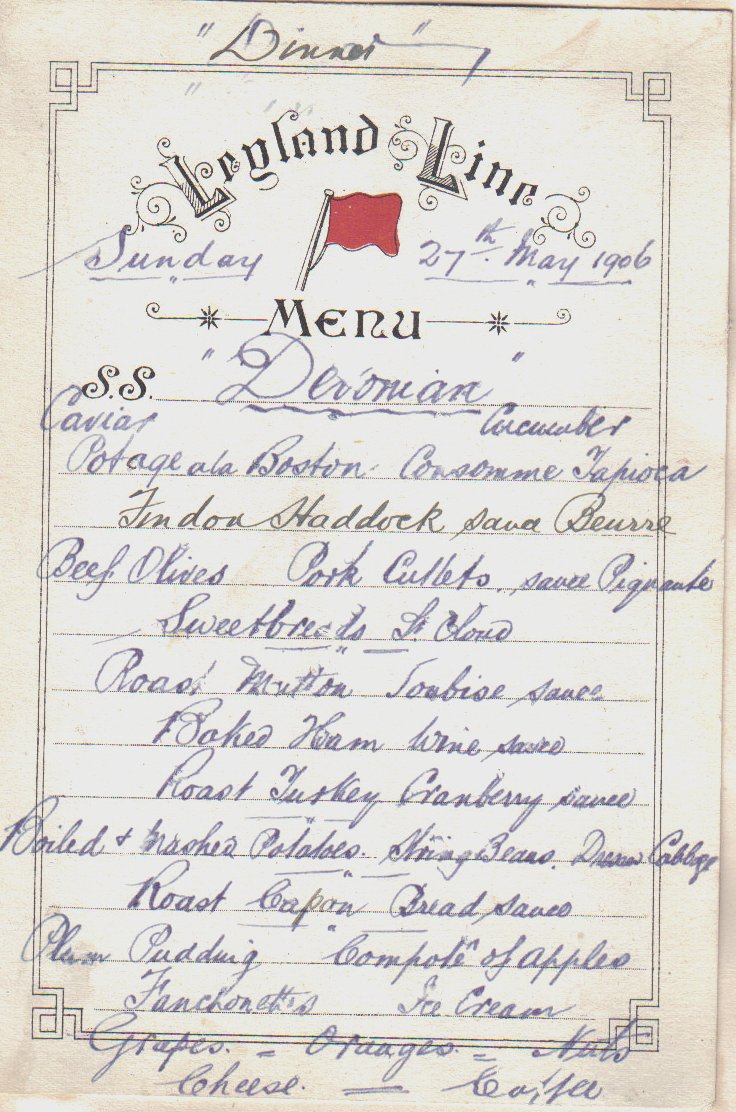 "Dinner"
Leyland Line
Sunday 27th May 1906
Menu
S.S. "Devonian"
Caviar Cucumber
Potage ala Boston Consomme Tapioca
Findon Haddock sauce Beurre
Beef Olives Pork Cutlets, sauce Piquante
Sweetbreads St Cloud
Roast Mutton Soubise sauce
Baked Ham Wine sauce
Roast Turkey Cranberry sauce
Boiled & Mashed Potatoes. String Beans. Cabbage
Roast Capon Bread sauce
Plum Pudding Compote of apples
Fanchonettes Ice Cream
Grapes. = Oranges = Nuts
Cheese. — Coffee